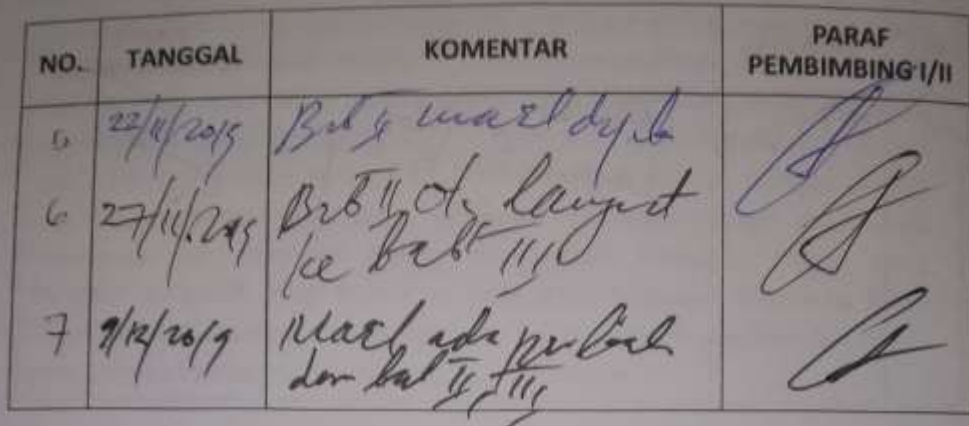 NO. TANGGAL KOMENTAR PARAF PEMBIMBING I/II
5 22/11/2019 Bab II
6 27/11/2019 Bab II ok, lanjut
ke bab III
7 9/12/2019 Masih ada
dan bab II, III